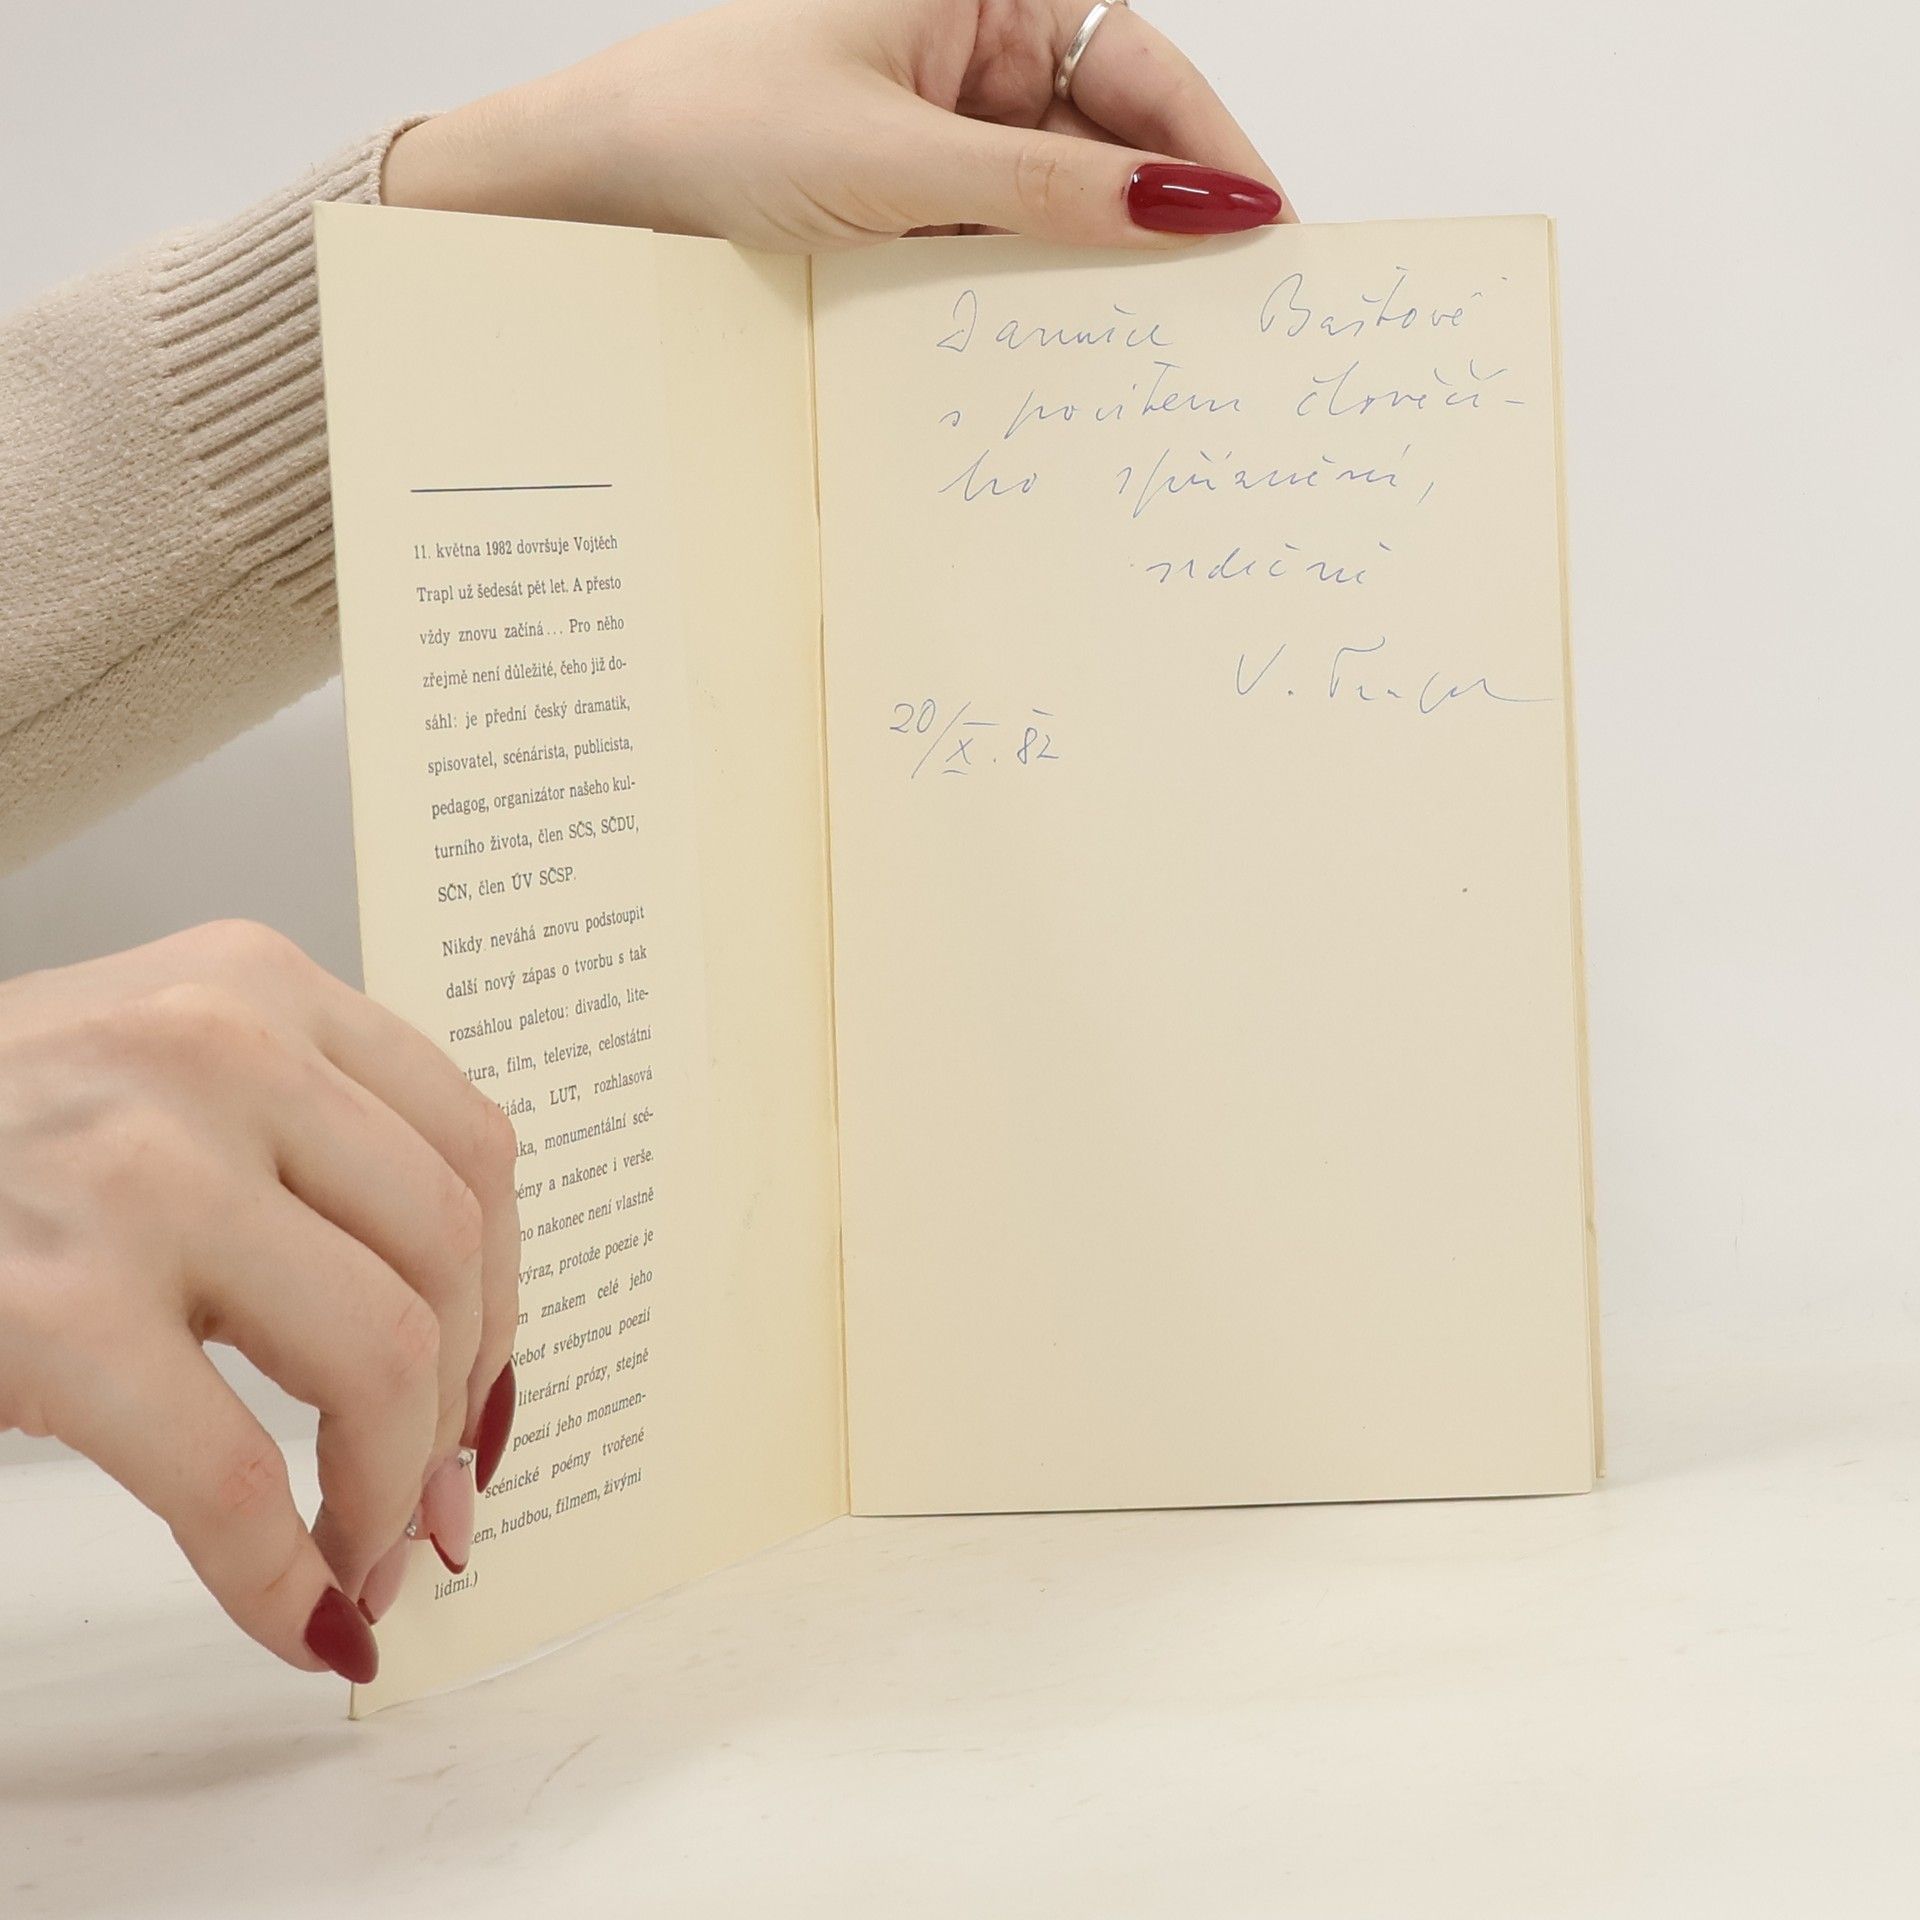 11. května 1982 dovršuje Vojtěch
Trapl už šedesát pět let. A přesto
vždy znovu začíná... Pro něho
zřejmě není důležité, čeho již do-
sáhl: je přední český dramatik,
spisovatel, scénárista, publicista,
pedagog, organizátor našeho kul-
turního života, člen SČS, SČDU,
SČN, člen ÚV SČSP.
Nikdy neváhá znovu podstoupit
další nový zápas o tvorbu s tak
rozsáhlou paletou: divadlo, lite-
tura, film, televize, celostátní
LUT, rozhlasová
monumentální scé-
a nakonec i verše.
nakonec není vlastně
výraz, protože poezie je
znakem celé jeho
Neboť svébytnou poezií
literární prózy, stejně
poezií jeho monumen-
scénické poémy tvořené
hudbou, filmem, živými
lidmi.)
Baštové
s pocitem člověčí-
ho spříznění,
srdečně
V. Trapl
20/X. 82